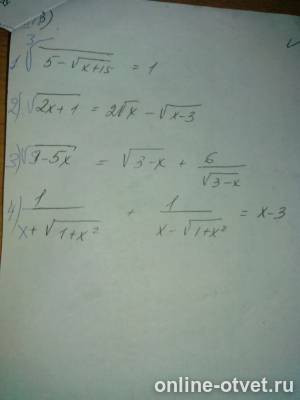 1) ∛(5-√(x+15)) = 1
2) √(2x+1) = 2√x - √(x-3)
3) √(9-5x) = √(3-x) + 6/√(3-x)
4) 1/(x+√(1+x²)) + 1/(x-√(1+x²)) = x-3
online-otvet.ru